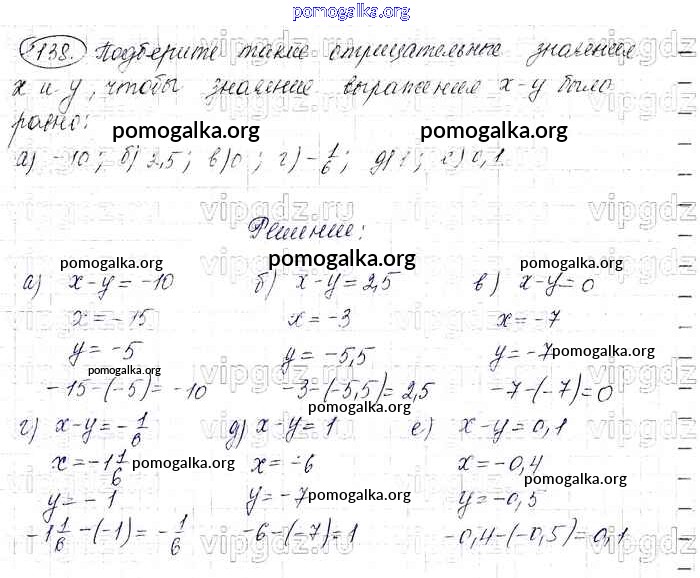 pomogalka.org
1138. Подберите такие отрицательные значения
x и y, чтобы значение выражения x-y было
равно:
pomogalka.org pomogalka.org
а) -10; б) 2,5; в) 0; г) -1/6; д) 1; е) 0,1
vipgdz.ru vipgdz.ru vipgdz.ru
Решение:
pomogalka.org pomogalka.org pomogalka.org
а) x-y = -10 б) x-y = 2,5 в) x-y = 0
x = -15 x = -3 x = -7
y = -5 y = -5,5 y = -7 pomogalka.org
pomogalka.org
-15-(-5) = -10 -3-(-5,5) = 2,5 -7-(-7) = 0
pomogalka.org
г) x-y = -1/6 д) x-y = 1 е) x-y = 0,1
x = -1 1/6 pomogalka.org x = -6 x = -0,4
pomogalka.org
y = -1 y = -7 pomogalka.org y = -0,5
-1 1/6 -(-1) = -1/6 -6-(-7) = 1 -0,4-(-0,5) = 0,1